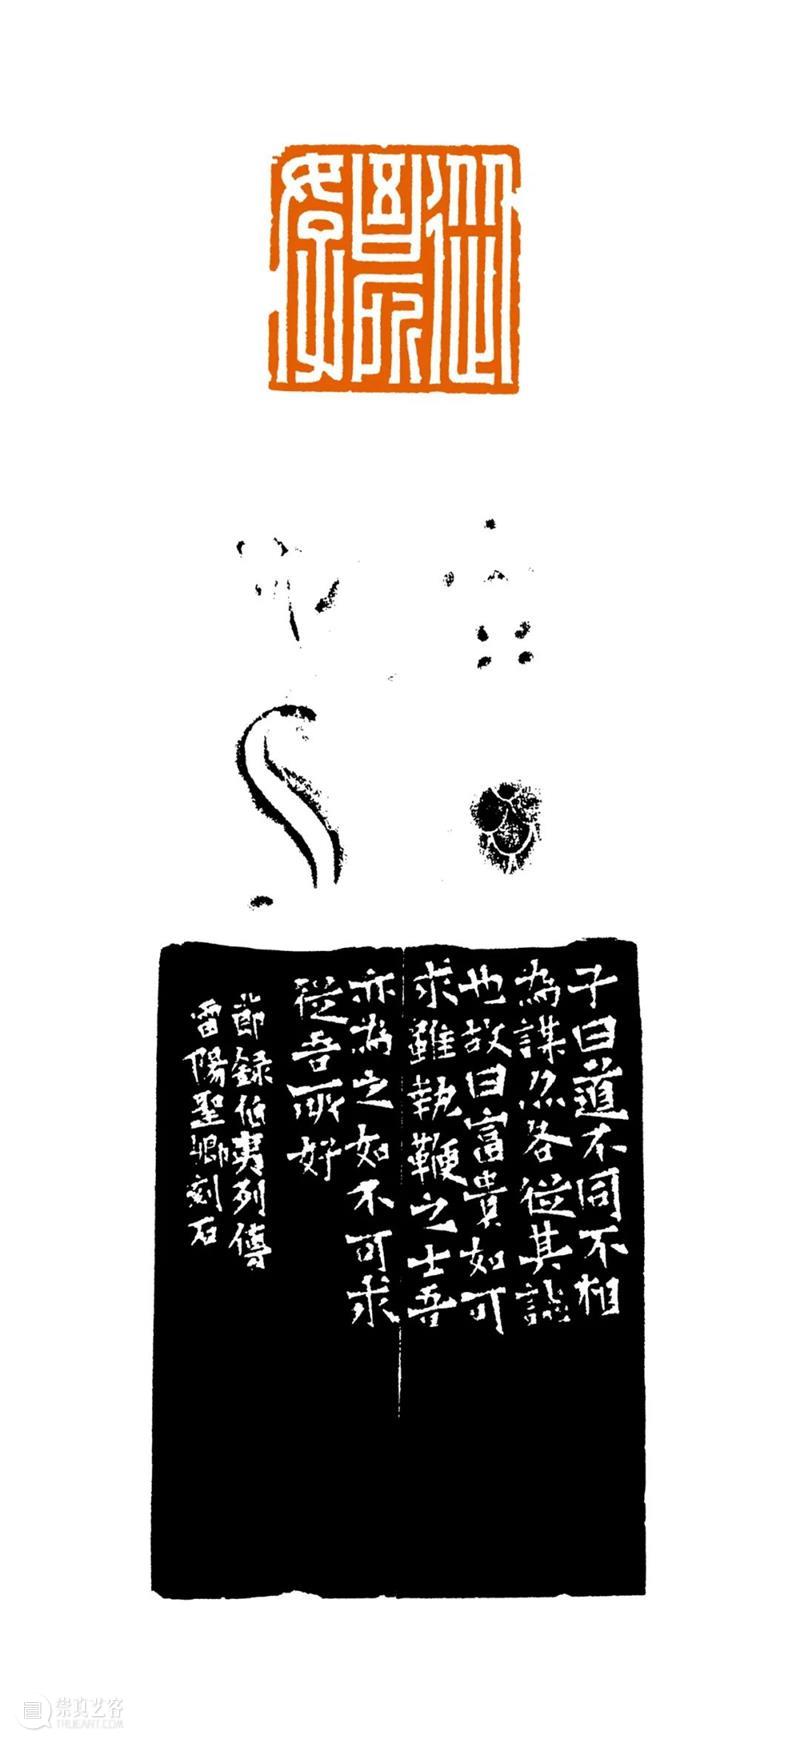 從吾所好
子曰道不同不相
為謀亦各從其誌
也故曰富貴如可
求雖執鞭之士吾
亦為之如不可求
從吾所好
節録伯夷列傳
雷陽聖卿刻石
崇真艺客
TRUEART.COM